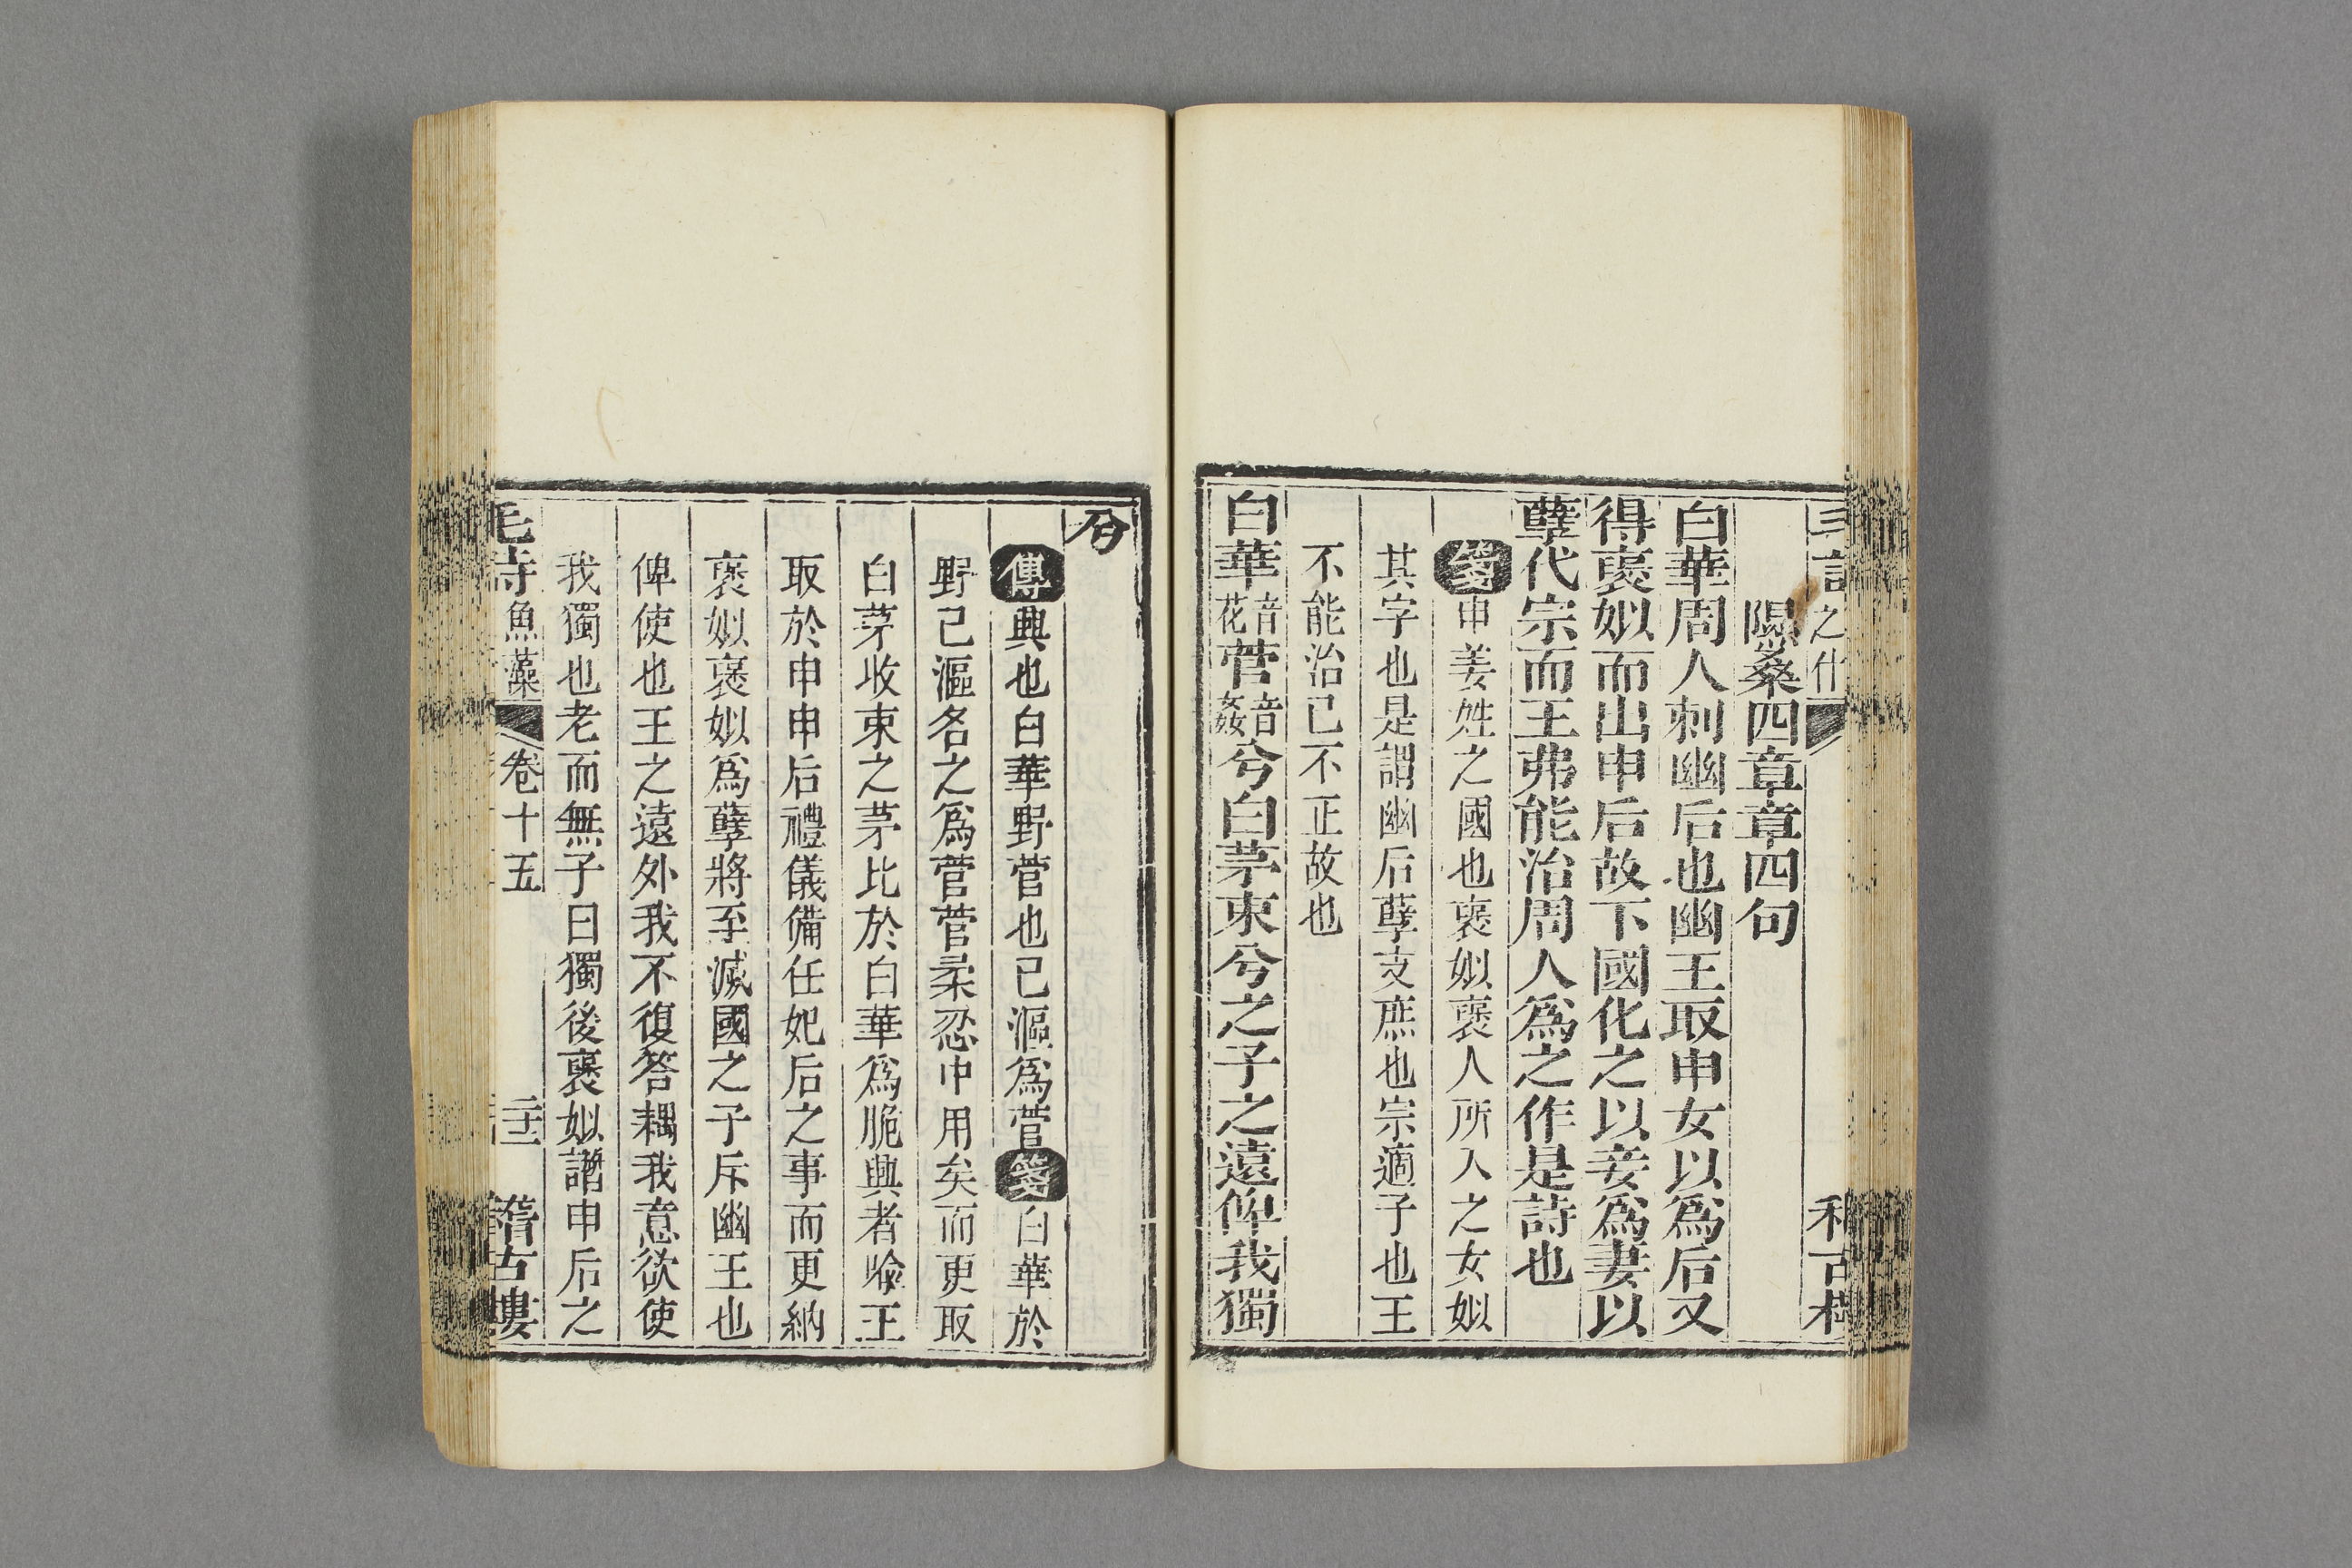 之什
隰桑四章章四句
白華周人刺幽后也幽王取申女以為后又
得褒姒而出申后故下國化之以妾為妻以
孽代宗而王弗能治周人為之作是詩也
箋申姜姓之國也褒姒褒人所入之女姒
其字也是謂幽后孽支庶也宗適子也王
不能治已不正故也
白華音花菅音姦兮白茅束兮之子之遠俾我獨
兮
傳興也白華野菅也已漚為菅箋白華於
野已漚名之為菅菅柔忍中用矣而更取
白茅收束之茅比於白華為脆興者喻王
取於申申后禮儀備任妃后之事而更納
褒姒褒姒為孽將至滅國之子斥幽王也
俾使也王之遠外我不復答耦我意欲使
我獨也老而無子曰獨後褒姒譖申后之
毛詩魚藻 卷十五 二十二 稽古樓